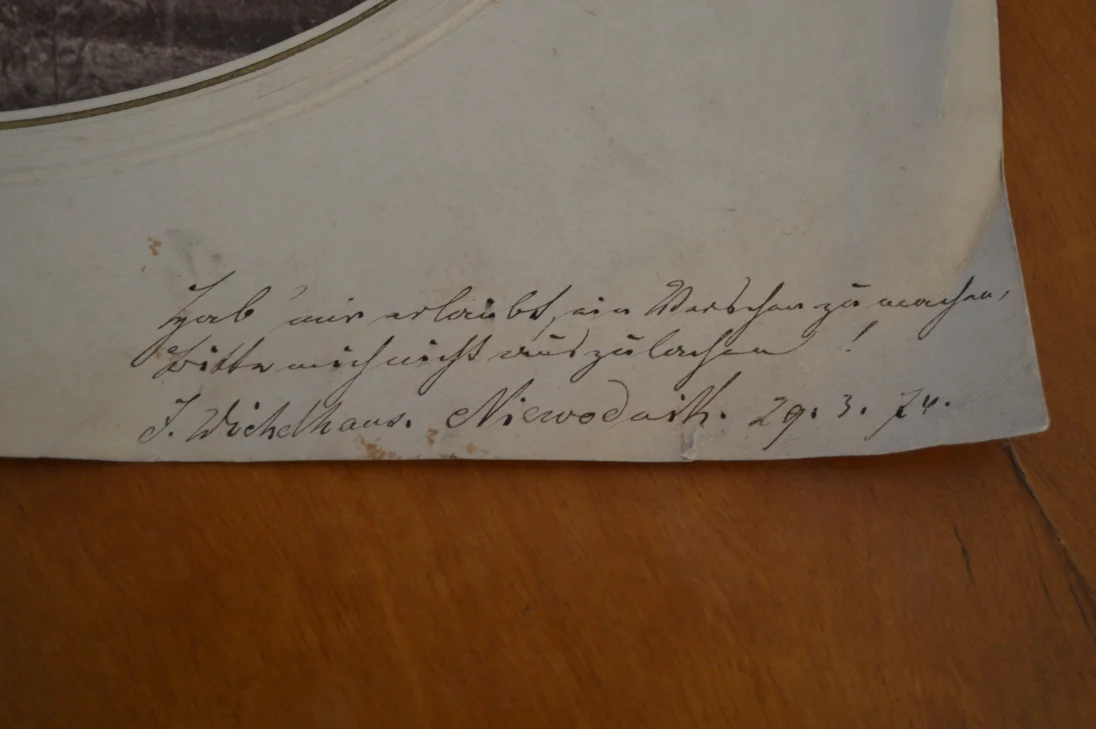 Hab' mir erlaubt, ein Verschen zu machen,
Bitte mich nicht auszulachen!
J. Wichelhaus. 29. 3. 74.